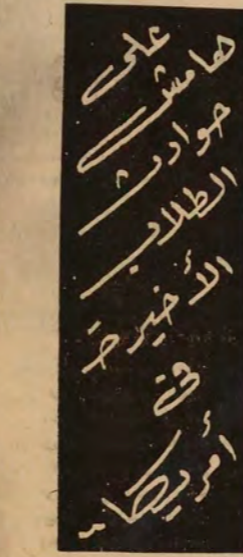 على
هامش
حوادث
الطلاب
الأخيرة
في
أمريكا